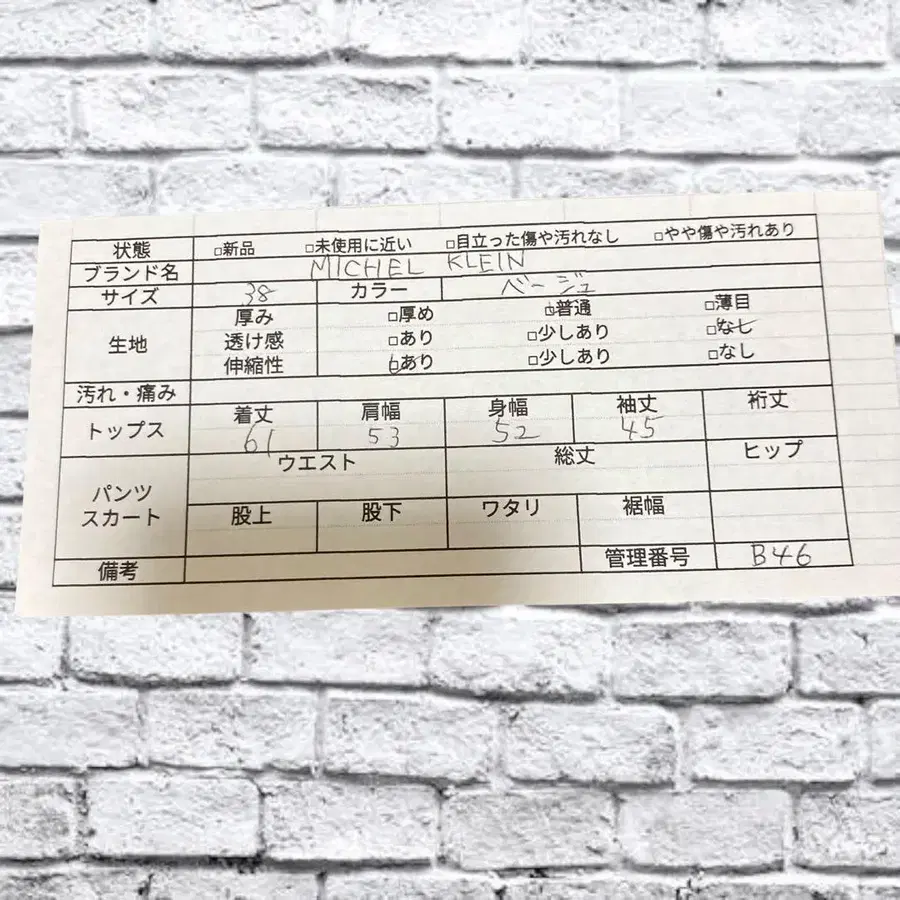 状態 □新品 □未使用に近い □目立った傷や汚れなし □やや傷や汚れあり
ブランド名 MICHEL KLEIN
サイズ 38 カラー ベージュ
生地 厚み □厚め □普通 □薄目
透け感 □あり □少しあり □なし
伸縮性 □あり □少しあり □なし
汚れ・痛み
トップス 着丈 肩幅 身幅 袖丈 裄丈
61 53 52 45
パンツ スカート ウエスト 総丈 ヒップ
股上 股下 ワタリ 裾幅
備考 管理番号 B46